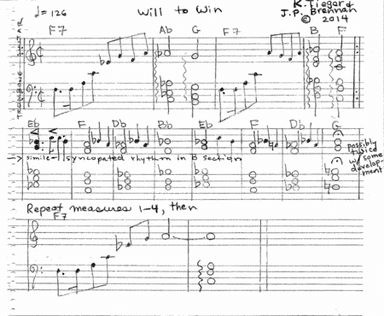 ♩=126 Will to Win K. Tieger &
J.P. Brennan
© 2014
F7 Ab G F7 B F
Eb F Db Bb Eb F Db G
possibly
twice
w/some
develop-
ment
simile - syncopated rhythm in B section
Repeat measures 1-4, then
F7